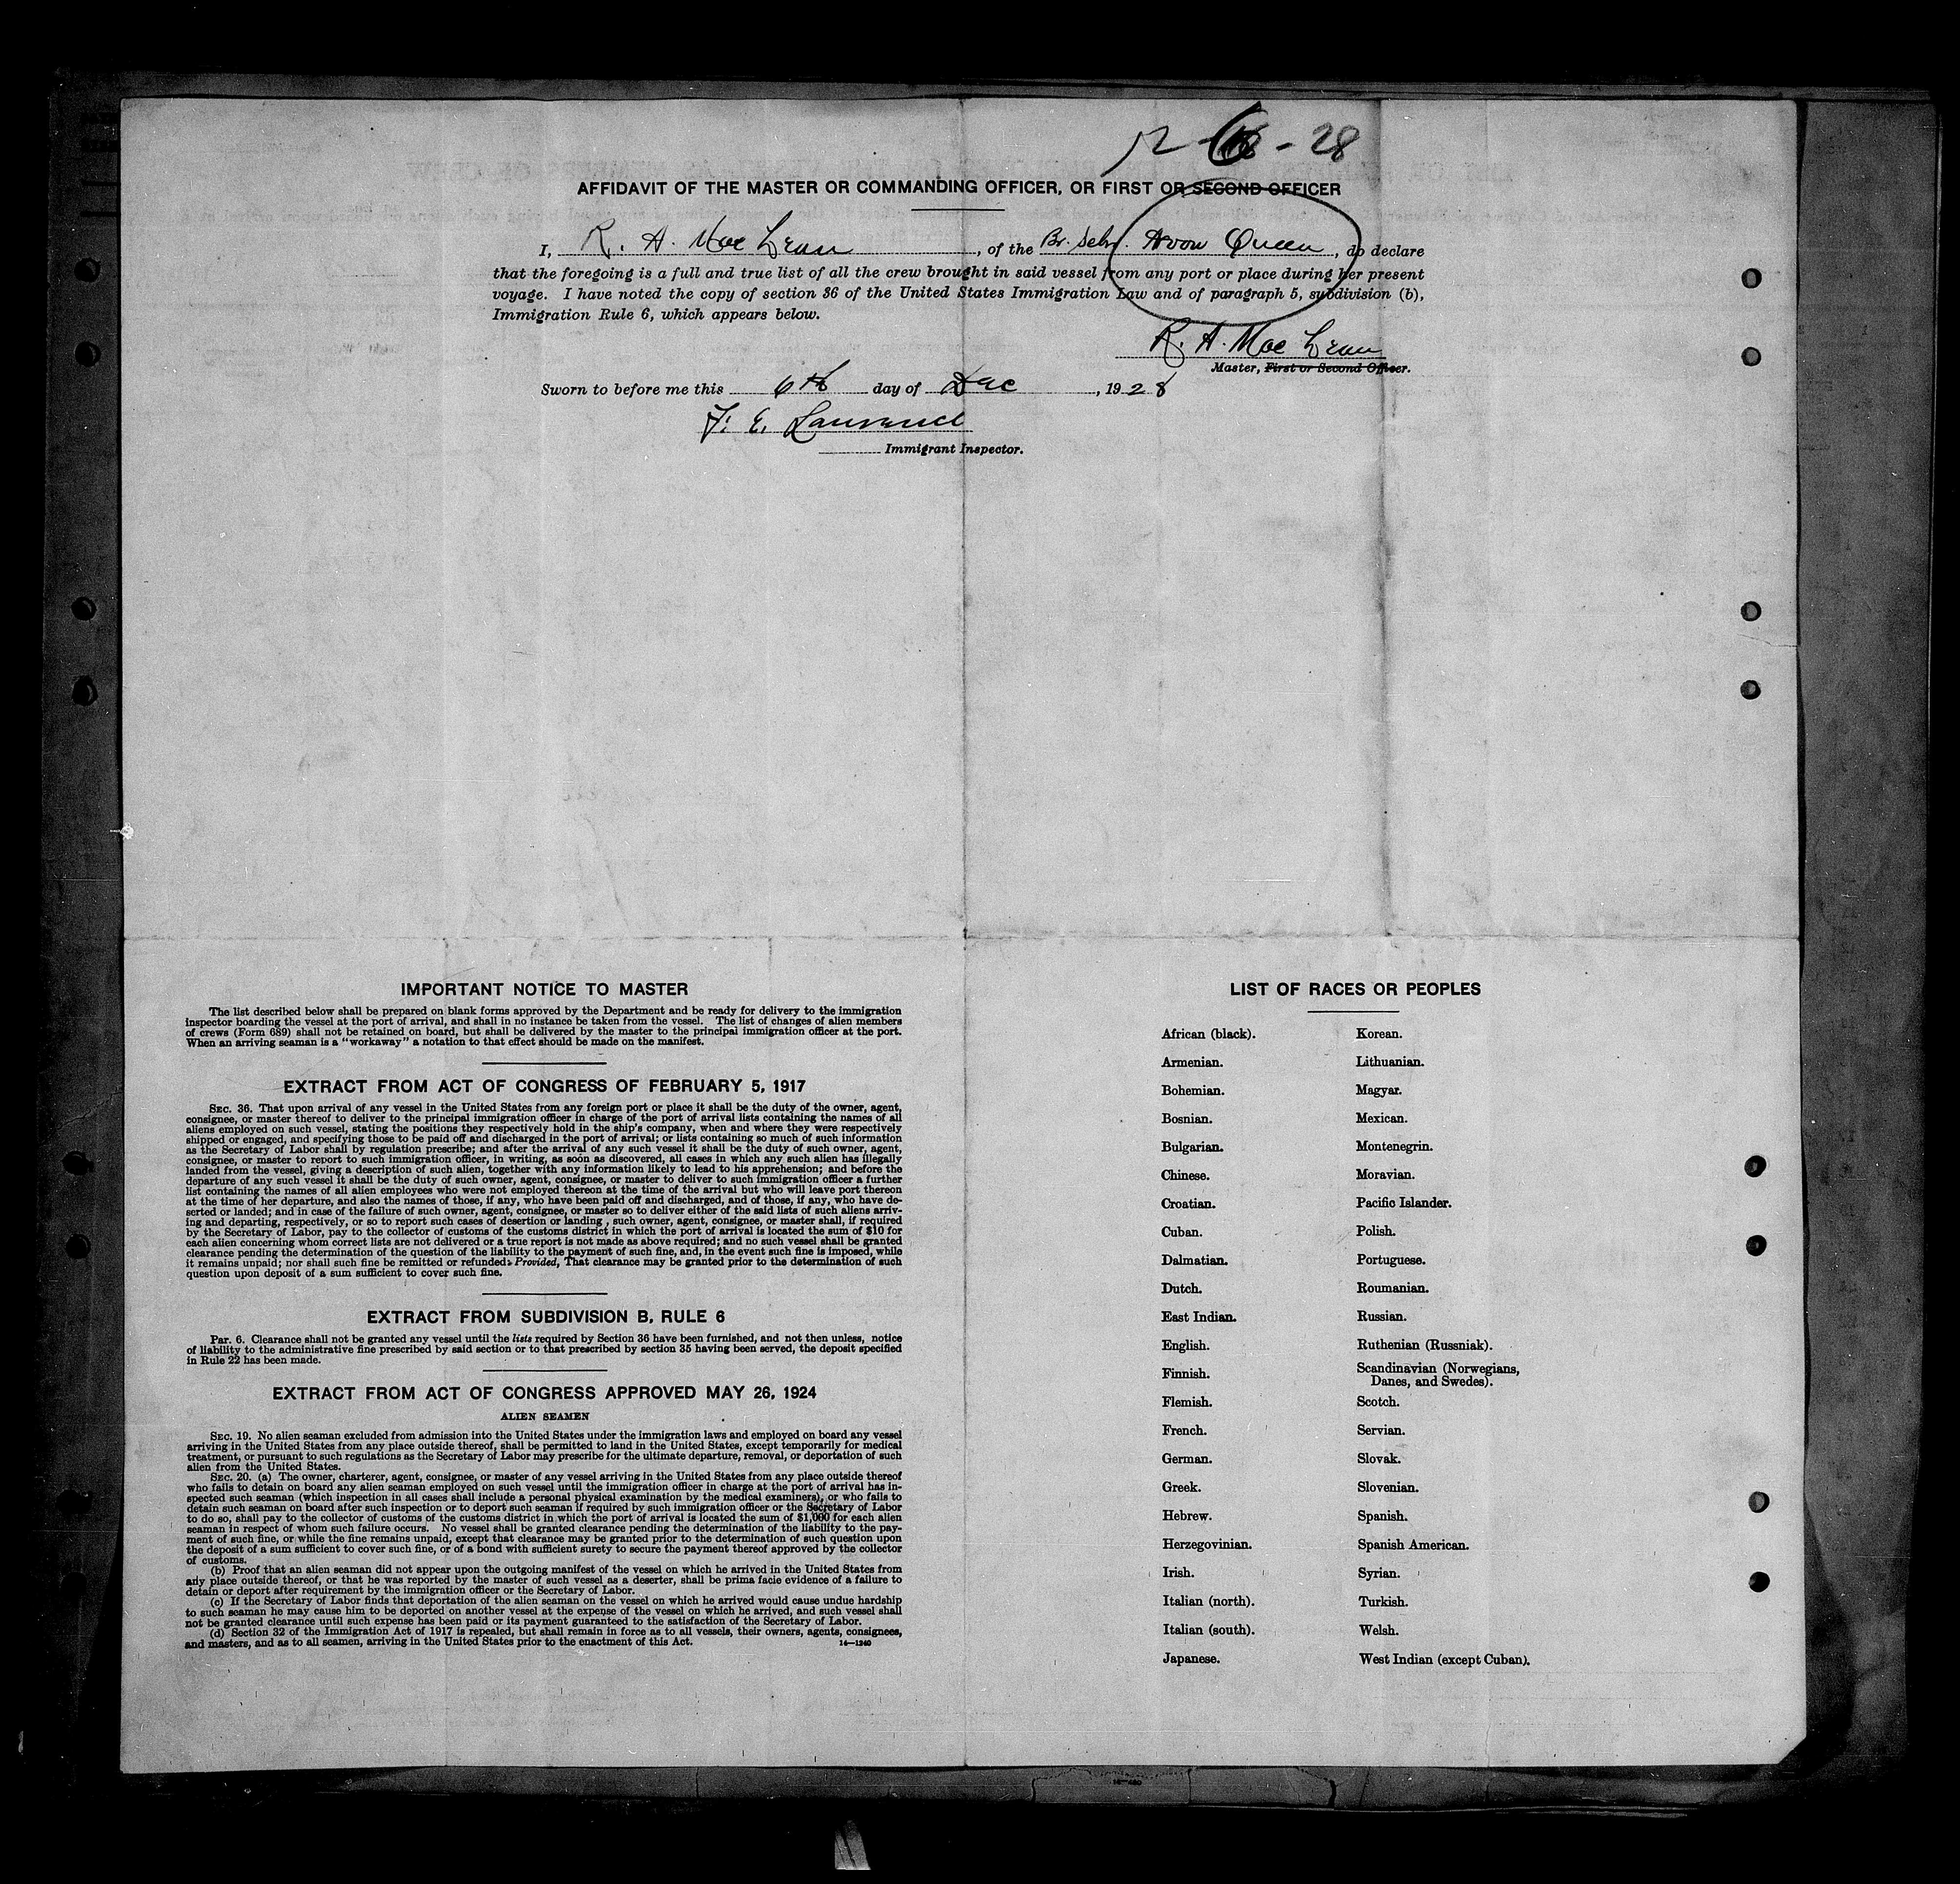 12-6-28
AFFIDAVIT OF THE MASTER OR COMMANDING OFFICER, OR FIRST OR SECOND OFFICER
I, R. A. Mac Lean, of the Br. Schr. Avon Queen, do declare
that the foregoing is a full and true list of all the crew brought in said vessel from any port or place during her present
voyage. I have noted the copy of section 36 of the United States Immigration Law and of paragraph 5, subdivision (b),
Immigration Rule 6, which appears below.
R. A. Mac Lean
Master, First or Second Officer.
Sworn to before me this 6th day of Dec, 1928
F. E.
Immigrant Inspector.
IMPORTANT NOTICE TO MASTER
The list described below shall be prepared on blank forms approved by the Department and be ready for delivery to the immigration
inspector boarding the vessel at the port of arrival, and shall in no instance be taken from the vessel. The list of changes of alien members
of crews (Form 689) shall not be retained on board, but shall be delivered by the master to the principal immigration officer at the port.
When an arriving seaman is a "workaway" a notation to that effect should be made on the manifest.
EXTRACT FROM ACT OF CONGRESS OF FEBRUARY 5, 1917
SEC. 36. That upon arrival of any vessel in the United States from any foreign port or place it shall be the duty of the owner, agent,
consignee, or master thereof to deliver to the principal immigration officer in charge of the port of arrival lists containing the names of all
aliens employed on such vessel, stating the positions they respectively hold in the ship's company, when and where they were respectively
shipped or engaged, and specifying those to be paid off and discharged in the port of arrival; or lists containing so much of such information
as the Secretary of Labor shall by regulation prescribe; and after the arrival of any such vessel it shall be the duty of such owner, agent,
consignee, or master to report to such immigration officer, in writing, as soon as discovered, all cases in which any such alien has illegally
landed from the vessel, giving a description of such alien, together with any information likely to lead to his apprehension; and before the
departure of any such vessel it shall be the duty of such owner, agent, consignee, or master to deliver to such immigration officer a further
list containing the names of all alien employees who were not employed thereon at the time of the arrival but who will leave port thereon
at the time of her departure, and also the names of those, if any, who have been paid off and discharged, and of those, if any, who have de-
serted or landed; and in case of the failure of such owner, agent, consignee, or master so to deliver either of the said lists of such aliens arriv-
ing and departing, respectively, or so to report such cases of desertion or landing, such owner, agent, consignee, or master shall, if required
by the Secretary of Labor, pay to the collector of customs of the customs district in which the port of arrival is located the sum of $10 for
each alien concerning whom correct lists are not delivered or a true report is not made as above required; and no such vessel shall be granted
clearance pending the determination of the question of the liability to the payment of such fine, and, in the event such fine is imposed, while
it remains unpaid; nor shall such fine be remitted or refunded: Provided, That clearance may be granted prior to the determination of such
question upon deposit of a sum sufficient to cover such fine.
EXTRACT FROM SUBDIVISION B, RULE 6
Par. 6. Clearance shall not be granted any vessel until the lists required by Section 36 have been furnished, and not then unless, notice
of liability to the administrative fine prescribed by said section or to that prescribed by section 35 having been served, the deposit specified
in Rule 22 has been made.
EXTRACT FROM ACT OF CONGRESS APPROVED MAY 26, 1924
ALIEN SEAMEN
SEC. 19. No alien seaman excluded from admission into the United States under the immigration laws and employed on board any vessel
arriving in the United States from any place outside thereof, shall be permitted to land in the United States, except temporarily for medical
treatment, or pursuant to such regulations as the Secretary of Labor may prescribe for the ultimate departure, removal, or deportation of such
alien from the United States.
SEC. 20. (a) The owner, charterer, agent, consignee, or master of any vessel arriving in the United States from any place outside thereof
who fails to detain on board any alien seaman employed on such vessel until the immigration officer in charge at the port of arrival has in-
spected such seaman (which inspection in all cases shall include a personal physical examination by the medical examiners), or who fails to
detain such seaman on board after such inspection or to deport such seaman if required by such immigration officer or the Secretary of Labor
to do so, shall pay to the collector of customs of the customs district in which the port of arrival is located the sum of $1,000 for each alien
seaman in respect of whom such failure occurs. No vessel shall be granted clearance pending the determination of the liability to the pay-
ment of such fine, or while the fine remains unpaid, except that clearance may be granted prior to the determination of such question upon
the deposit of a sum sufficient to cover such fine, or of a bond with sufficient surety to secure the payment thereof approved by the collector
of customs.
(b) Proof that an alien seaman did not appear upon the outgoing manifest of the vessel on which he arrived in the United States from
any place outside thereof, or that he was reported by the master of such vessel as a deserter, shall be prima facie evidence of a failure to
detain or deport after requirement by the immigration officer or the Secretary of Labor.
(c) If the Secretary of Labor finds that deportation of the alien seaman on the vessel on which he arrived would cause undue hardship
to such seaman he may cause him to be deported on another vessel at the expense of the vessel on which he arrived, and such vessel shall
not be granted clearance until such expense has been paid or its payment guaranteed to the satisfaction of the Secretary of Labor.
(d) Section 32 of the Immigration Act of 1917 is repealed, but shall remain in force as to all vessels, their owners, agents, consignees,
and masters, and as to all seamen, arriving in the United States prior to the enactment of this Act. 14—1240
LIST OF RACES OR PEOPLES
African (black). Korean.
Armenian. Lithuanian.
Bohemian. Magyar.
Bosnian. Mexican.
Bulgarian. Montenegrin.
Chinese. Moravian.
Croatian. Pacific Islander.
Cuban. Polish.
Dalmatian. Portuguese.
Dutch. Roumanian.
East Indian. Russian.
English. Ruthenian (Russniak).
Finnish. Scandinavian (Norwegians,
Danes, and Swedes).
Flemish. Scotch.
French. Servian.
German. Slovak.
Greek. Slovenian.
Hebrew. Spanish.
Herzegovinian. Spanish American.
Irish. Syrian.
Italian (north). Turkish.
Italian (south). Welsh.
Japanese. West Indian (except Cuban).